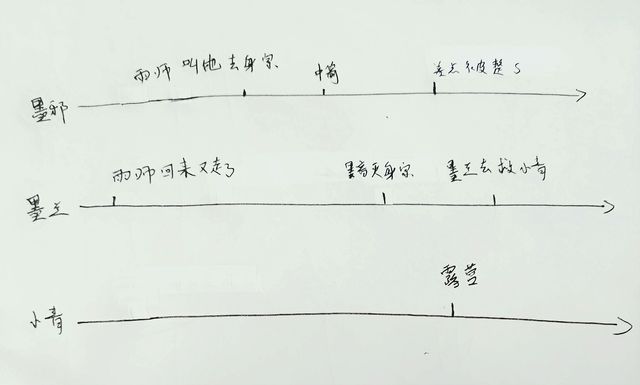 雨师叫他去身宗 中箭 差点被楚S
墨邪
雨师回来又走了 墨奇灭身宗 墨兰去救小青
墨兰
露营
小青